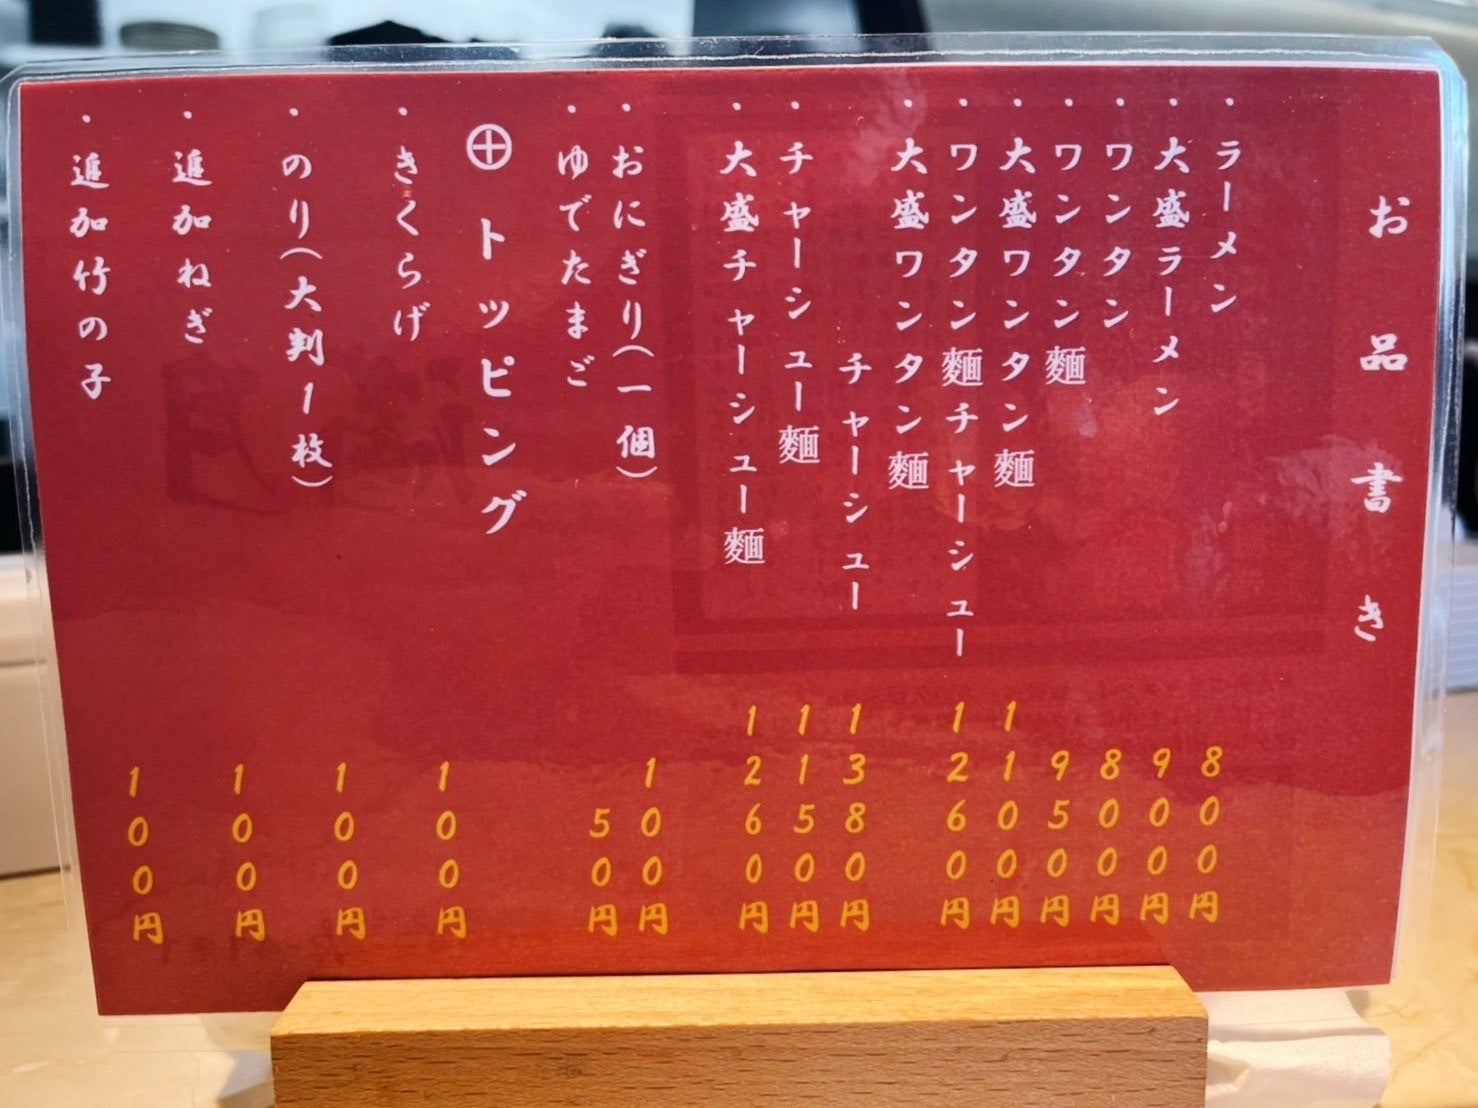 お品書き
・ラーメン 800円
・大盛ラーメン 900円
・ワンタン 800円
・ワンタン麵 950円
・大盛ワンタン麵 1100円
・ワンタン麵チャーシュー 1260円
・大盛ワンタン麵
チャーシュー 1380円
・チャーシュー麵 1150円
・大盛チャーシュー麵 1260円
・おにぎり(一個) 100円
・ゆでたまご 50円
⊕ トッピング
・きくらげ 100円
・のり(大判1枚) 100円
・進加ねぎ 100円
・進加竹の子 100円